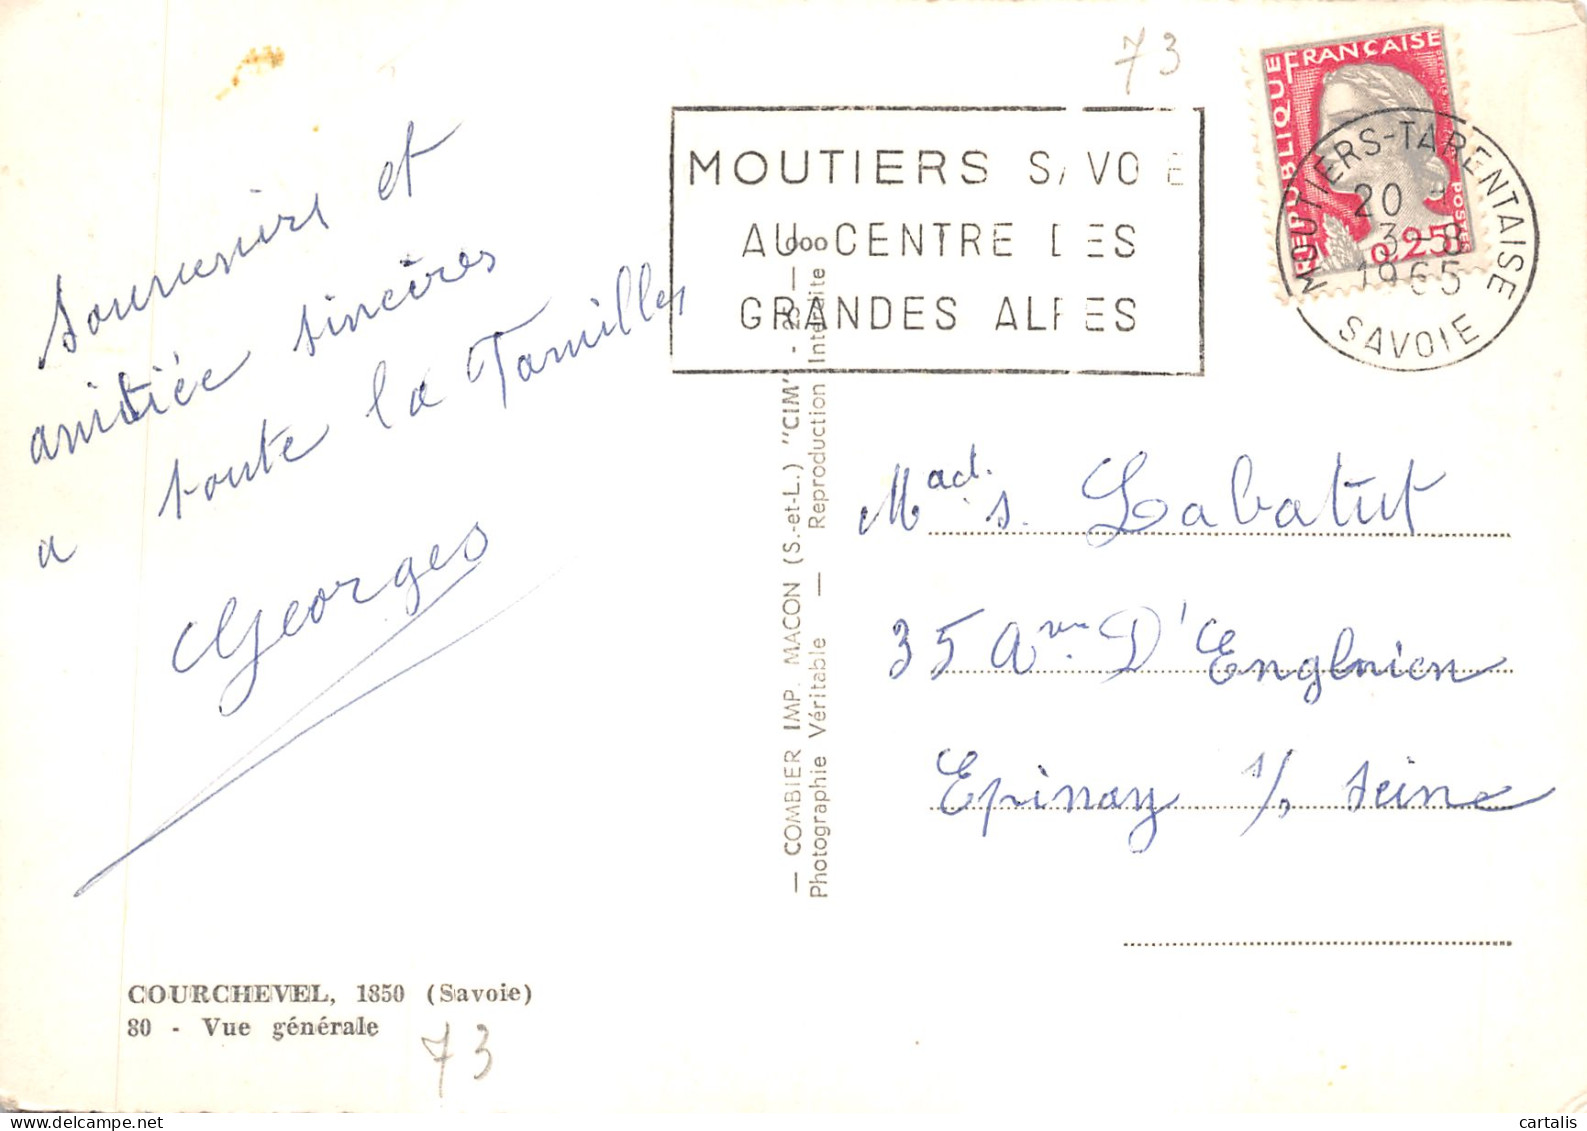 73
RÉPUBLIQUE FRANÇAISE
POSTES
0,25
MOUTIERS-TARENTAISE
20
3-8
1965
SAVOIE
MOUTIERS SAVOIE
AU CENTRE DES
GRANDES ALPES
Souvenirs et
amitiée sincères
a toute la Familles
Georges
— COMBIER IMP. MACON (S.-et-L.) "CIM" -
Photographie Véritable — Reproduction Interdite
Mad. s. Labatut
35 Avn D'Enghien
Epinay s/s seine
COURCHEVEL, 1850 (Savoie)
80 - Vue générale
73
cartalis